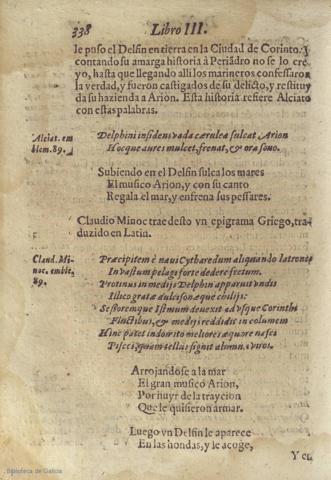 338 Libro III.
le puso el Delfin en tierra en la Ciudad de Corinto. Y
contando su amarga historia à Periãdro no se lo cre
yo, hasta que llegando alli los marineros confessaron
la verdad, y fueron castigados de su delicto, y restituy
da su hazienda a Arion. Esta historia refiere Alciato
con estas palabras.
Alciat. em
blem. 89.
Delphini insidens vada cærulea sulcat Arion
Hocque aures mulcet, frenat, & ora sono.
Subiendo en el Delfin sulca los mares
El musico Arion, y con su canto
Regala el mar, y enfrena sus pessares.
Claudio Minoc trae desto vn epigrama Griego, tra
duzido en Latin.
Claud. Mi-
noc. emble.
89.
Præcipitem è naui Cytharedum aliquando latrones
In vastum pelagi forte dedere fretum.
Protinus in medijs Delphin apparuit vndis
Illico gratæ dulcisonæque chilijs:
Hinc patet indomito meliores æquore nasci
Arrojandose a la mar
El gran musico Arion,
Por huyr de la traycion
Que le quisieron armar.
Luego vn Delfin le aparece
En las hondas, y le acoge,
Y ct
Biblioteca de Galicia